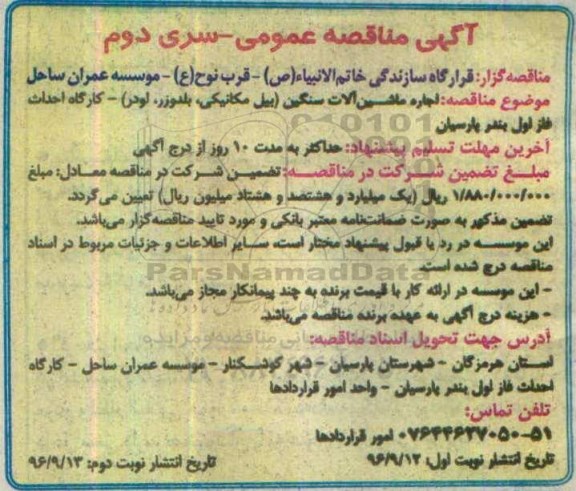 آگهی مناقصه عمومی-سری دوم
مناقصه‌گزار: قرارگاه سازندگی خاتم‌الانبیاء(ص) - قرب نوح(ع) - موسسه عمران ساحل
موضوع مناقصه: اجاره ماشین‌آلات سنگین (بیل مکانیکی، بلدوزر، لودر) - کارگاه احداث
فاز اول بندر پارسیان
آخرین مهلت تسلیم پیشنهاد: حداکثر به مدت ۱۰ روز از درج آگهی
مبلغ تضمین شرکت در مناقصه: تضمین شرکت در مناقصه معادل: مبلغ
۱/۸۸۰/۰۰۰/۰۰۰ ریال (یک میلیارد و هشتصد و هشتاد میلیون ریال) تعیین می‌گردد.
تضمین مذکور به صورت ضمانت‌نامه معتبر بانکی و مورد تایید مناقصه‌گزار می‌باشد.
این موسسه در رد یا قبول پیشنهاد مختار است، سایر اطلاعات و جزئیات مربوط در اسناد
مناقصه درج شده است.
ParsNamadData
- این موسسه در ارائه کار با قیمت برنده به چند پیمانکار مجاز می‌باشد.
- هزینه درج آگهی به عهده برنده مناقصه می‌باشد.
آدرس جهت تحویل اسناد مناقصه:
استان هرمزگان - شهرستان پارسیان - شهر کوشکنار - موسسه عمران ساحل - کارگاه
احداث فاز اول بندر پارسیان - واحد امور قراردادها
تلفن تماس:
۰۷۶۴۴۶۳۷۰۵۰-۵۱ امور قراردادها
تاریخ انتشار نوبت اول: ۹۶/۹/۱۲ تاریخ انتشار نوبت دوم: ۹۶/۹/۱۳